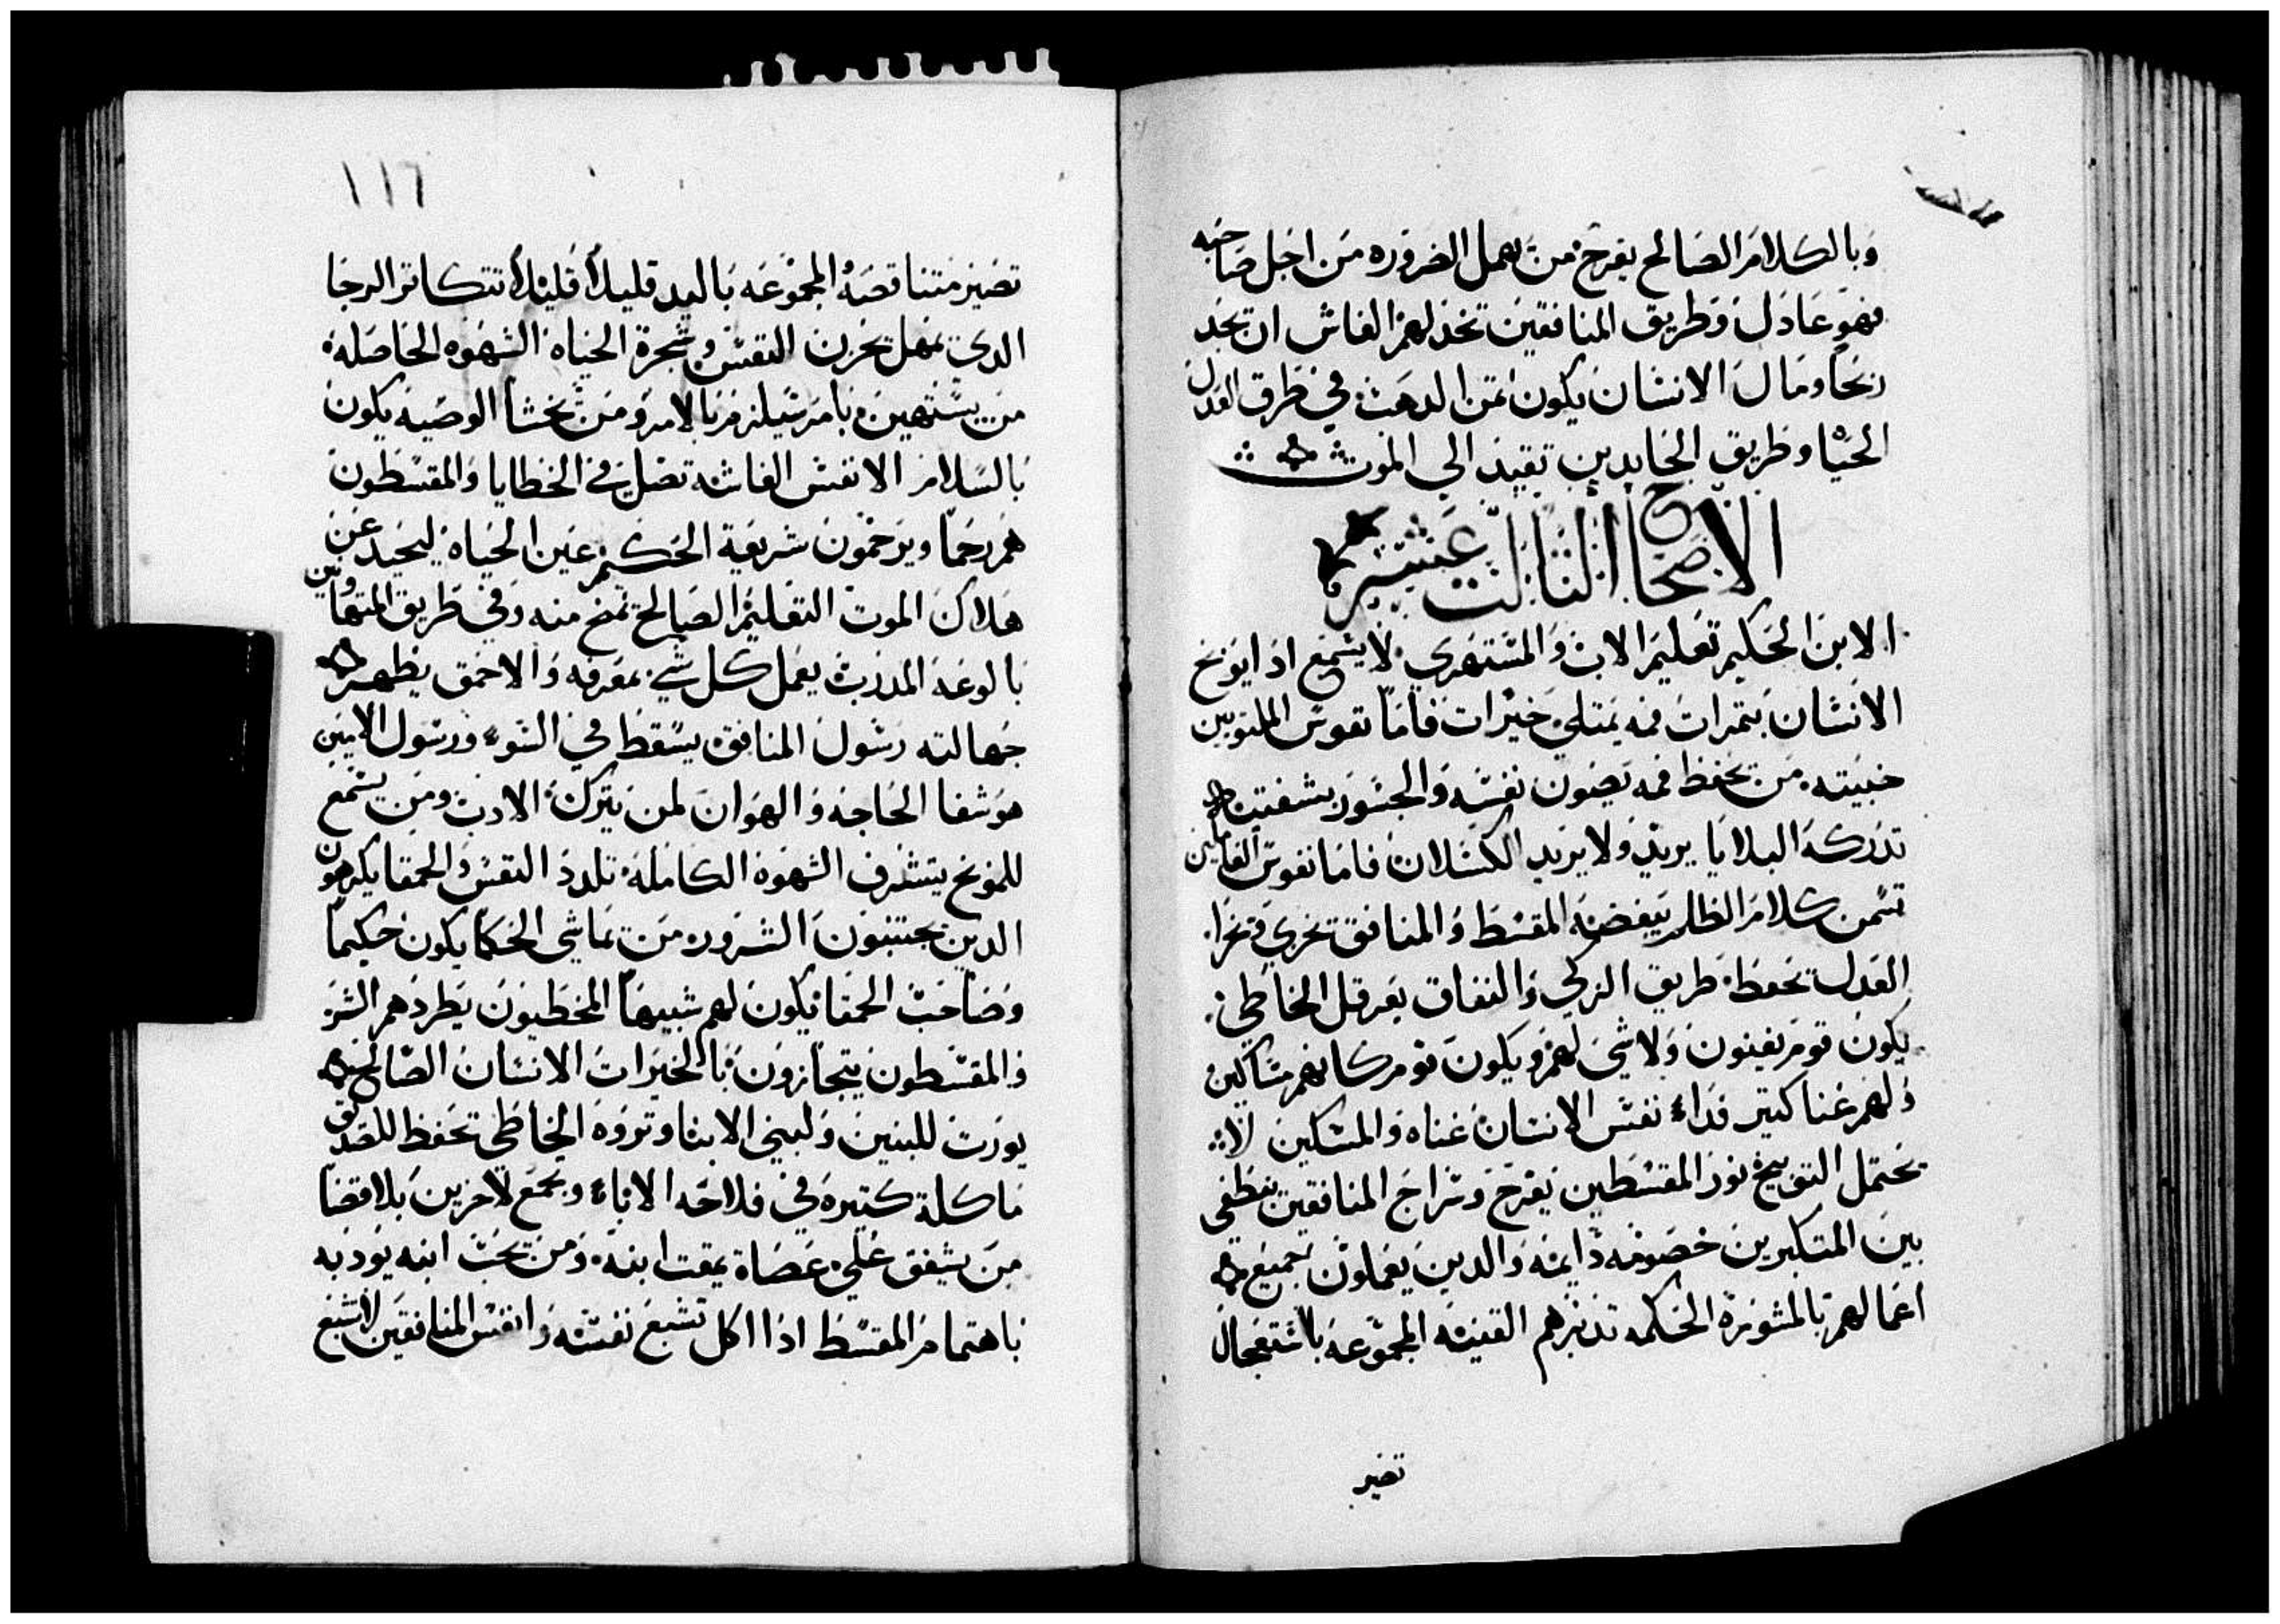 وبالكلام الصالح يفرح من يهمل الضروره من اجل صاحبه
فهو عادل وطريق المنافقين تخدلهم الغاش ان يجد
ربحا ومال الانسان يكون ثمن الدهب في طرق العدل
الحيا وطريق الحايدين تقيد الي الموت
الاصحاح الثالث عشر
الابن الحكيم تعليم الاب والمستهزي لا يسمع ادا يوبخ
الانسان بثمرات فمه يمتلي خيرات فاما نفوس الملتويين
خبيثه من يحفظ فمه يصون نفسه والجسور بشفتيه
تدركه البلايا يريد ولا يريد الكسلان فاما نفوس العاملين
تسمن كلام الظلم يبغضه المقسط والمنافق يخزي ويخزا
العدل يحفظ طريق الزكي والنفاق يعرقل الخاطي
يكون قوم يغنون ولا شي لهم ويكون قوم كانهم مساكين
ولهم غنا كثير فداء نفس الانسان غناه والمسكين لا
يحتمل التوبيخ نور المقسطين يفرح وسراج المنافقين ينطفي
بين المتكبرين خصومه دايمه والدين يعملون جميع
اعمالهم بالمشورة الحكمه تدبرهم القنيه المجموعه بالاستعجال
تصير
١١٦
تصير متناقصه المجموعه باليد قليلا قليلا تتكاثر الرجا
الدي يمهل يحزن النفس وشجرة الحياه الشهوه الحاصله
من يستهين بامر سيلزم بالامر ومن يخشا الوصيه يكون
بالسلام الانفس الغاشه تضل في الخطايا والمقسطون
هم رحما ويرحمون شريعة الحكيم عين الحياه ليحيد عن
هلاك الموت التعليم الصالح تمنح منه وفي طريق المتهاونين
بالوعه المدرب يعمل كل شي بمعرفه والاحمق يظهر
جهالته رسول المنافق يسقط في السوء ورسول الامين
هو شفا الحاجه والهوان لمن يترك الادب ومن يسمع
للموبخ يتشرف الشهوه الكامله تلدد النفس والحمقا يكرهون
الدين يجتنبون الشرور من يماشي الحكما يكون حكيما
وصاحب الحمقا يكون لهم شبيها المخطيون يطردهم الشر
والمقسطون يتجازون بالخيرات الانسان الصالح
يورث للبنين ولبني الابنا وثروة الخاطي تحفظ للصديق
ماكلة كثيره في فلاحه الاباء وتجمع لاخرين بلا قضا
من يشفق علي عصاة يمقت ابنه ومن يحب ابنه يودبه
باهتمام المقسط ادا اكل تشبع نفسه وانفس المنافقين لا تشبع